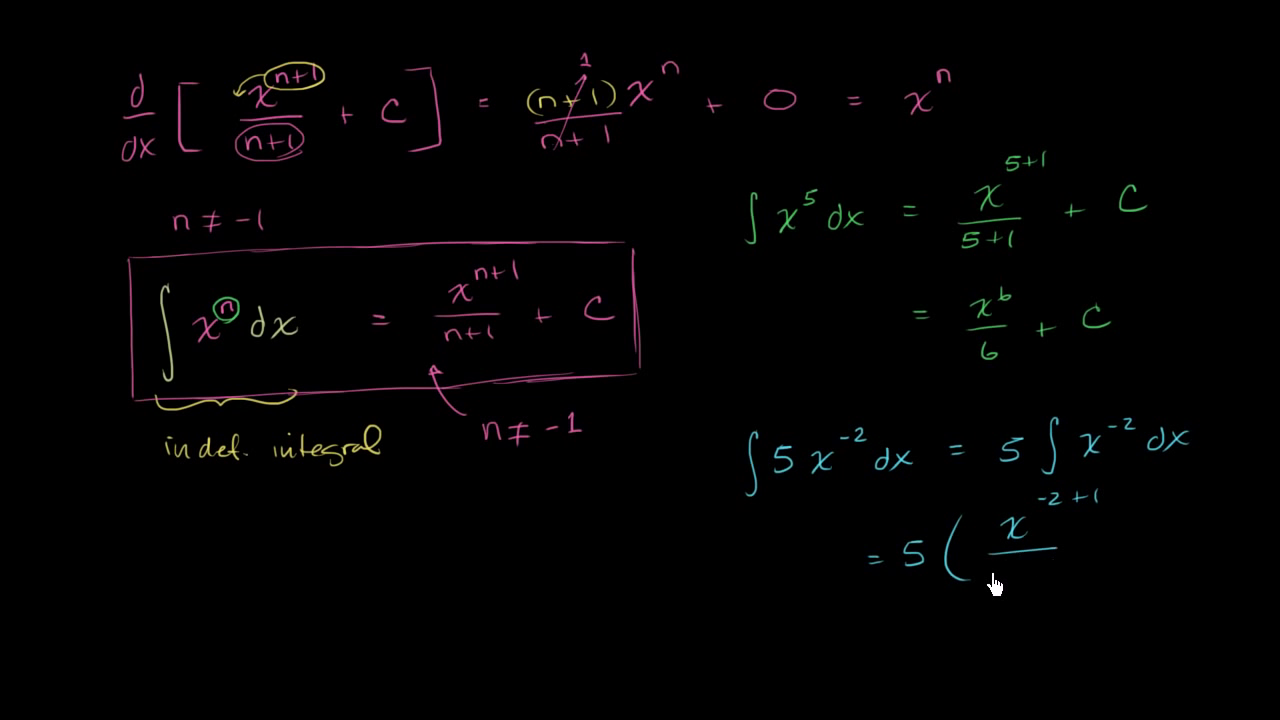 d/dx [ x^(n+1)/(n+1) + C ] = (n+1)x^n/(n+1) 1 + 0 = x^n
n ≠ -1
∫ x^n dx = x^(n+1)/(n+1) + C
indef. integral
n ≠ -1
∫ x^5 dx = x^(5+1)/(5+1) + C
= x^6/6 + C
∫ 5 x^-2 dx = 5 ∫ x^-2 dx
= 5 ( x^(-2+1)/